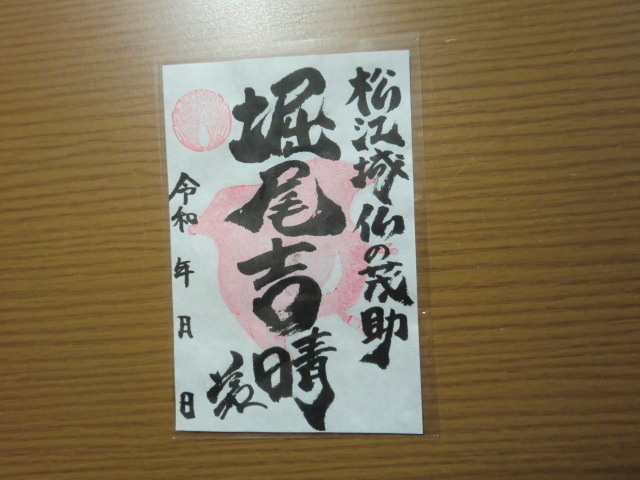 松江城仏の茂助
堀尾吉晴
令和 年 月 日